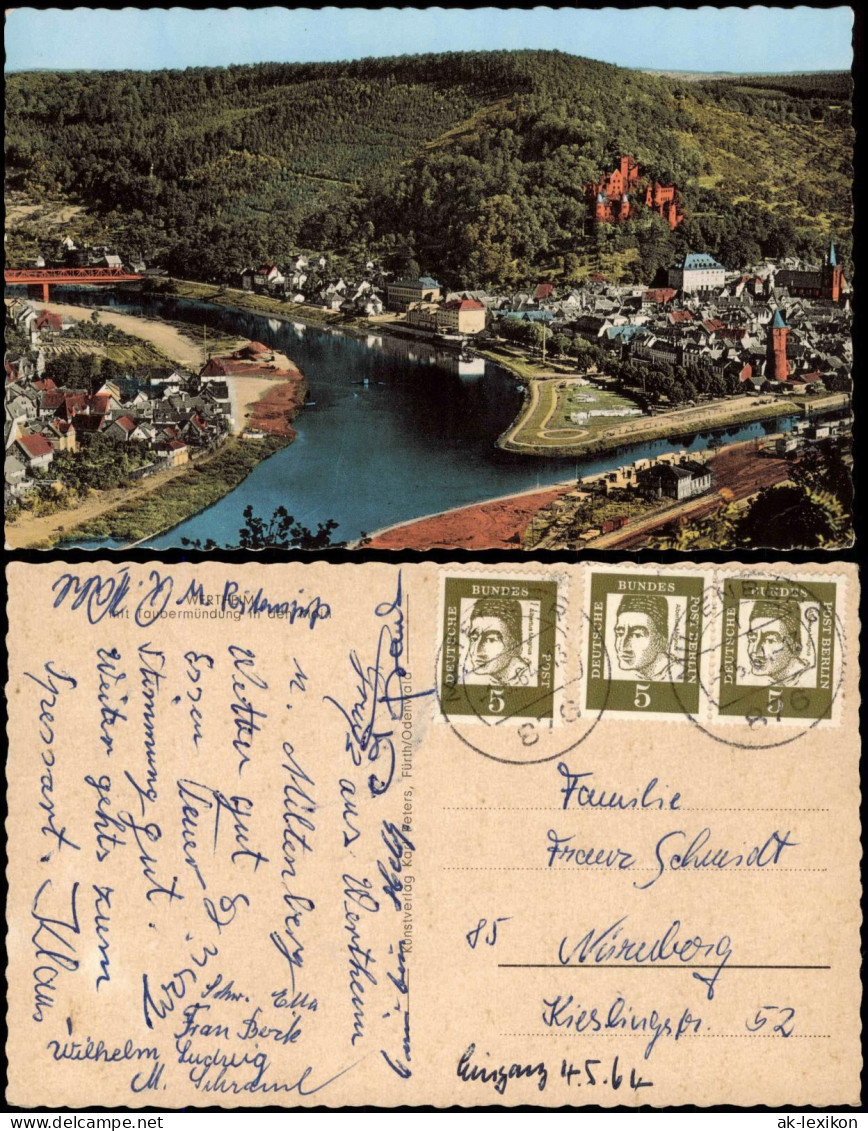 WERTHEIM
mit Taubermündung in den Main
Kunstverlag Karl Peters, Fürth/Odenwald
Gruß aus Wertheim
u. Miltenberg
Wetter gut &
Essen
Stimmung gut.
Weiter gehts zum
Spessart. Klaus
Schw. Ella
Frau Beck
Wilhelm Ludwig
M. Schraml
DEUTSCHE
BUNDES
POST
5
DEUTSCHE
BUNDES
POST BERLIN
5
DEUTSCHE
BUNDES
POST BERLIN
5
MILTENBERG
876
876
Familie
Franz Schmidt
85 Nürnberg
Kieslingstr. 52
Eingang 4.5.64
ak-lexikon